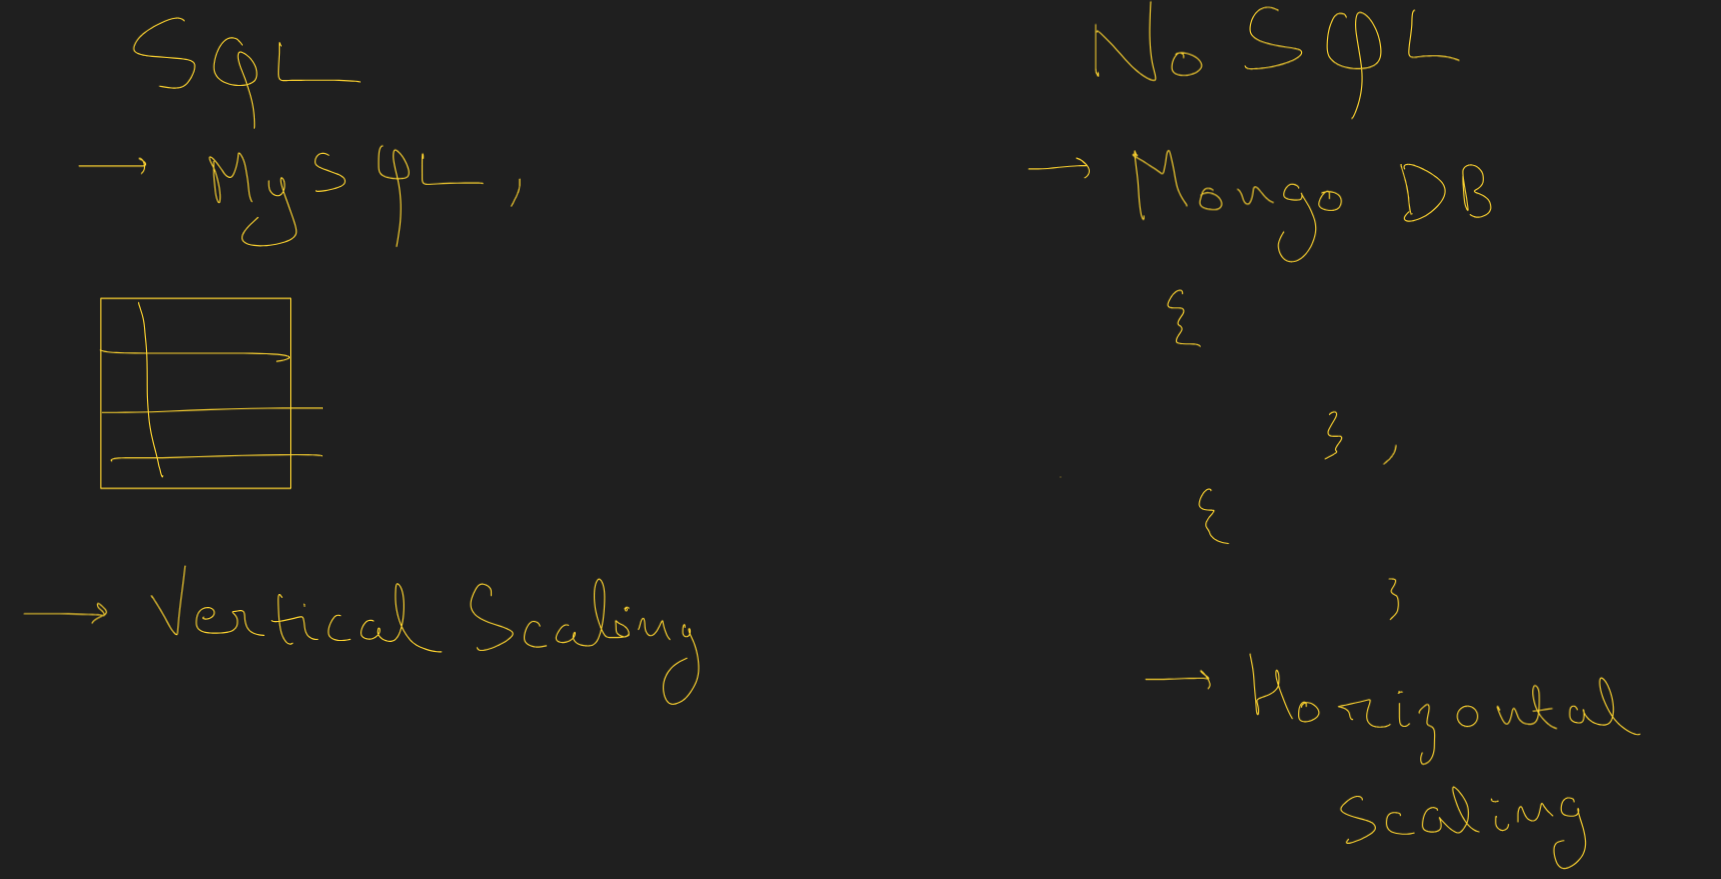 SQL
→ MySQL,
→ Vertical Scaling
NoSQL
→ Mongo DB
{
},
{
}
→ Horizontal
Scaling